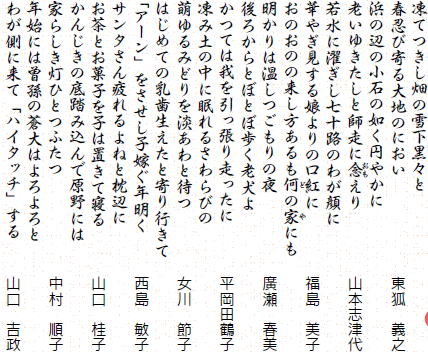 凍てつきし畑の雪下黒々と
春忍び寄る大地のにおい 東狐 義之
浜の辺の小石の如く円やかに
老いゆきたしと師走に念えり 山本志津代
おも
若水に濯ぎし七十路のわが顔に
華やぎ見する娘よりの口紅に 福島 美子
おのおのの来し方あるも何の家にも
ど や
明かりは温しつごもりの夜 廣瀬 春美
後ろからとぼとぼ歩く老犬よ
かつては我を引っ張り走ったに 平岡田鶴子
凍み土の中に眠れるさわらびの
萌ゆるみどりを淡あわと待つ 女川 節子
はじめての乳歯生えたと寄り行きて
「アーン」をさせし子嫁ぐ年明く 西島 敏子
サンタさん疲れるよねと枕辺に
お茶とお菓子を子は置きて寝る 山口 桂子
かんじきの底踏み込んで原野には
家らしき灯ひとつふたつ 中村 順子
年始には曽孫の蒼大はよろよろと
わが側に来て「ハイタッチ」する 山口 吉政